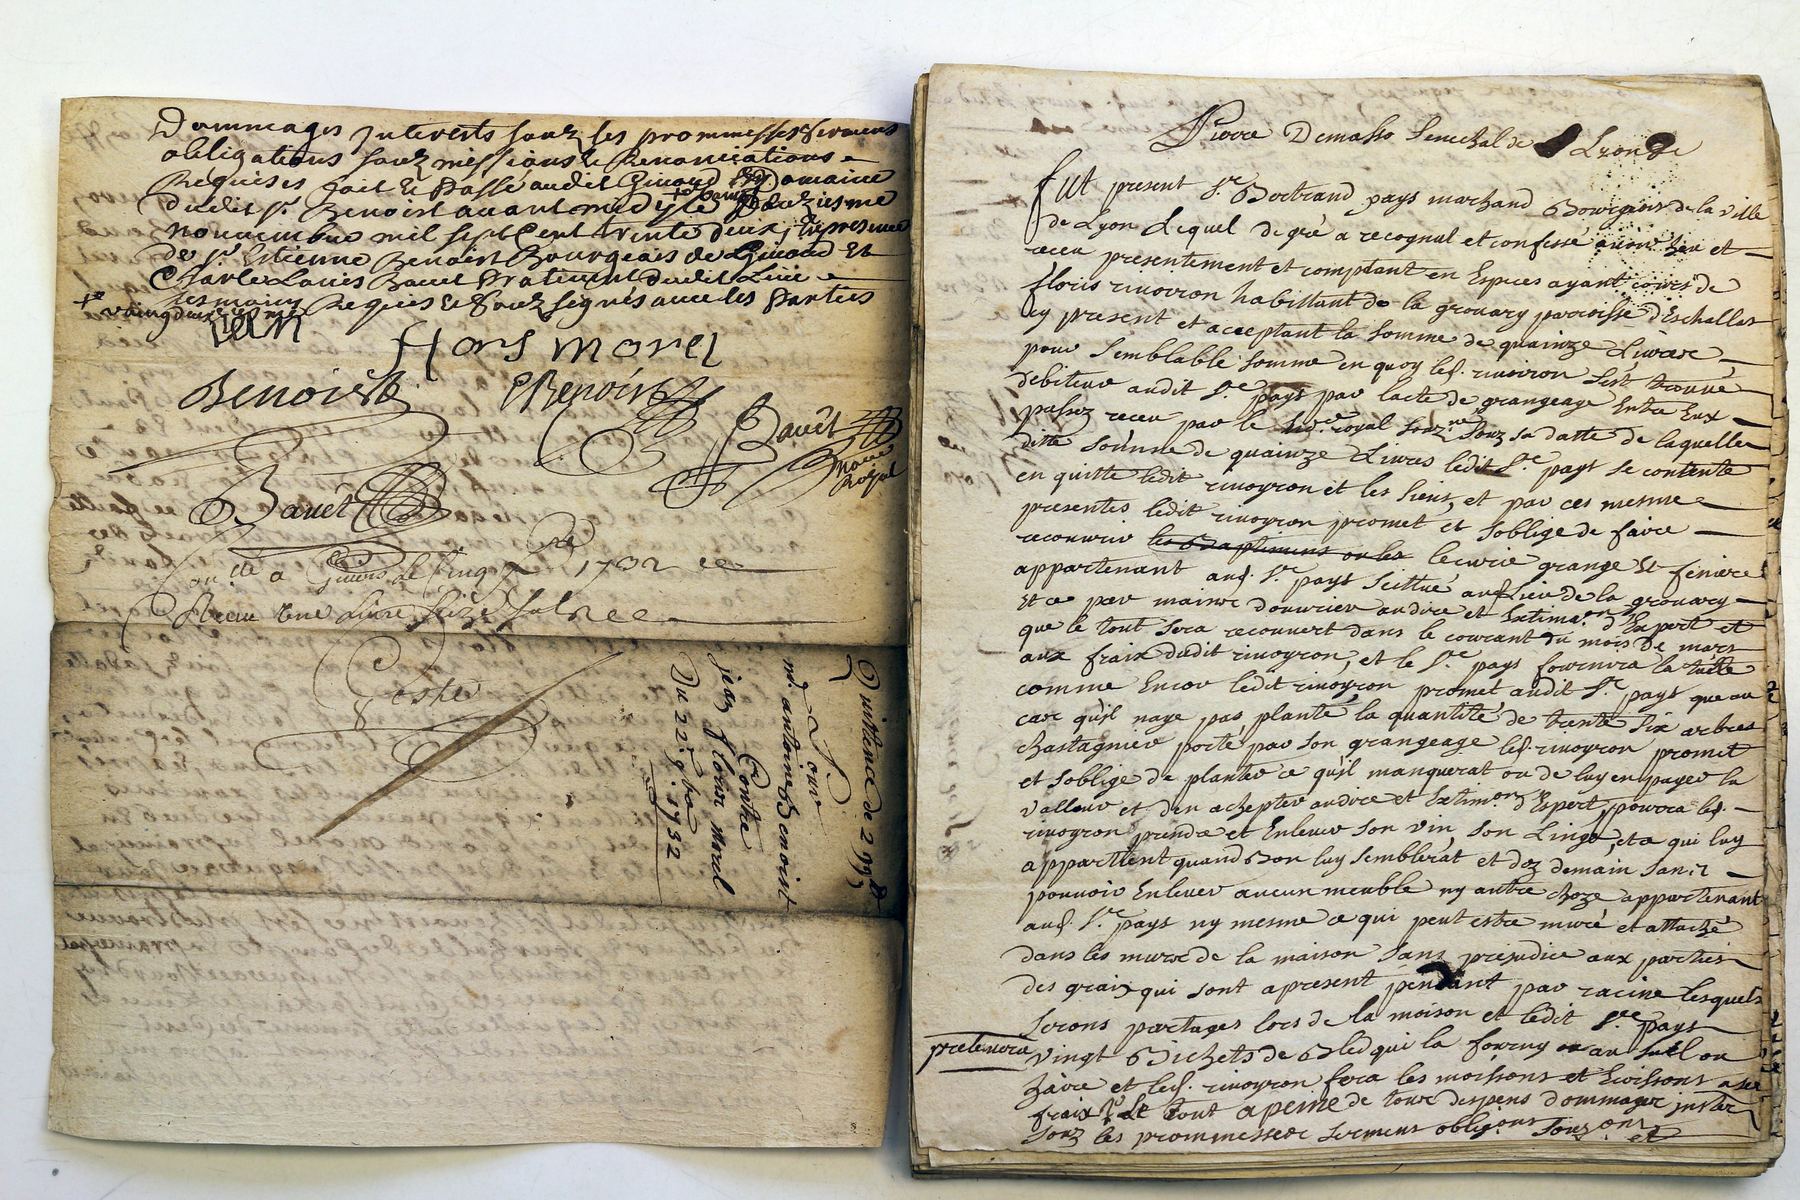 Dommages Interests souz les prommesses sermens
obligations souz missions & Renonciations
Requises fait & Passé audit Givord domaine
dudit Sr. Benoist avant midy le
novembre mil sept cent trente deux, En presence
de Sr. Estienne Benoist Bourgeois de Givord Et
Charle Louis Bauet Praticient dudit Lieu
tesmoins Requis & souz signés avec les Parties
vaingdeuxiesme
flors morel
Benoist
EBenoist
Bauët
Bauët
Nore
Royal
a Givors le 1732
Receu une Livre seize sols
Coste
Quittence de
Pour
mr. antoine Benoist
Contre
jean floris morel
Du 22e. 9bre 1732
Pierre Demasso Senechal de Lyon
fut present Sr. Bertrand pays marchand Bourgeois de la ville
de Lyon Lequel de gré a recognut et confessé avoir heu et
receu presentement et comptant en Especes ayant cours de
floris rivoiron habittant de la grouary parroisse d'Eschallas
cy present et acceptant la somme de quainze Livres
pour semblable somme en quoy led. rivoiron s'est trouvé
debiteur audit Sr. pays par lacte de grangeage Entre Eux
passez receu par le nore. royal souzne. souz sa datte de laquelle
ditte somme de quainze Livres ledit Sr. pays se contente
en quitte ledit rivoyron et les siens, et par ces mesme
presentes ledit rivoyron promet et soblige de faire
recouvrir lecurie grange Et feniere
appartenant aud. Sr. pays scittué aud Lieu de la grouary
Et ce par mains douvrier au dire et Extimaon d'Expert et
que le tout sera recouvert dans le courrant du mois de mars
aux fraix dudit rivoyron, et le Sr. pays fournira la tuille
comme Encor ledit rivoyron promet audit Sr. pays que au
cas qu'il naye pas planté la quantité de trente six arbres
chastagnier porté par son grangeage led. rivoyron promet
et soblige de planter ce qu'il manquerat ou de luy en payer la
valleur et den achepter au dire et Extimon d'Expert, pourra led.
rivoyron prendre et Enlever son vin son Linge, et a qui luy
appartient quand bon luy semblerat et dez demain sans
pouvoir Enlever aucun meuble ny autre choze appartenant
aud. Sr. pays ny mesme ce qui peut estre muré et attaché
dans les murs de la maison sans prejudice aux parties
des graix qui sont apresent pendant par racine lesquels
serons partages lors de la moison et ledit Sr. pays
prelevera vingt Bichets de Bled qui la fourny au suel ou
haire et led. rivoyron fera les moissons et a ses
fraix Et tout a peine de tous despens dommages inster
souz les prommesses sermens obligons souzons et